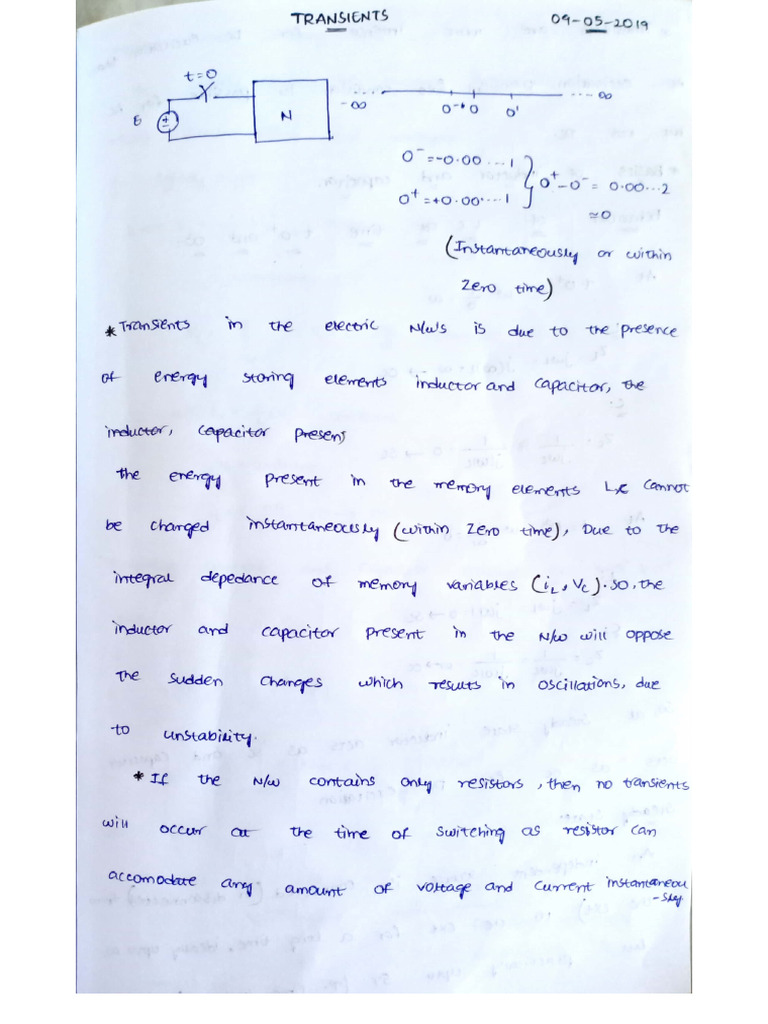 TRANSIENTS
04-05-2019
t=0
E
N
-∞
0⁻ 0
0'
∞
0⁻ = -0.00....1
0⁺ = +0.00....1
0⁺-0⁻ = 0.00...2
≃0
(Instantaneously or within
Zero time)
* Transients in the electric N/w's is due to the presence
of energy storing elements inductor and capacitor, the
inductor, capacitor present
the energy present in the memory elements L&C cannot
be changed instantaneously (within zero time), Due to the
integral depedance of memory variables (iL, Vc). so, the
inductor and capacitor present in the N/w will oppose
the sudden changes which results in oscillations, due
to unstability.
* If the N/w contains only resistors, then no transients
will occur at the time of switching as resistor can
accomodate any amount of voltage and current instantaneou
-sly.